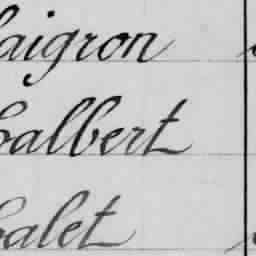 aigron
albert
alet